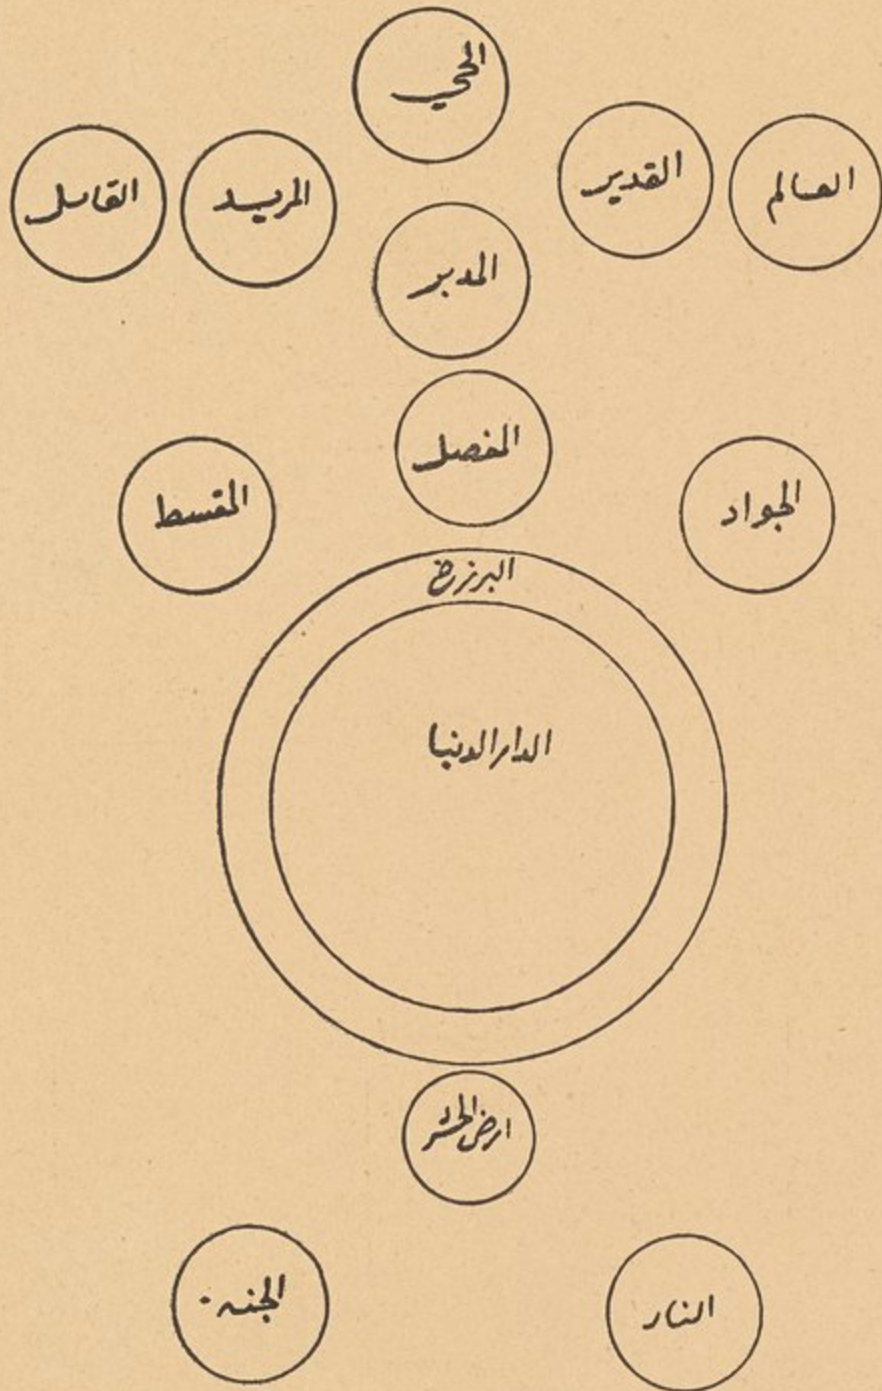 الحي
العالم
القدير
المريد
القائل
المدبر
المفصل
الجواد
المقسط
البرزخ
الدار الدنيا
ارض الحشر
النار
الجنه